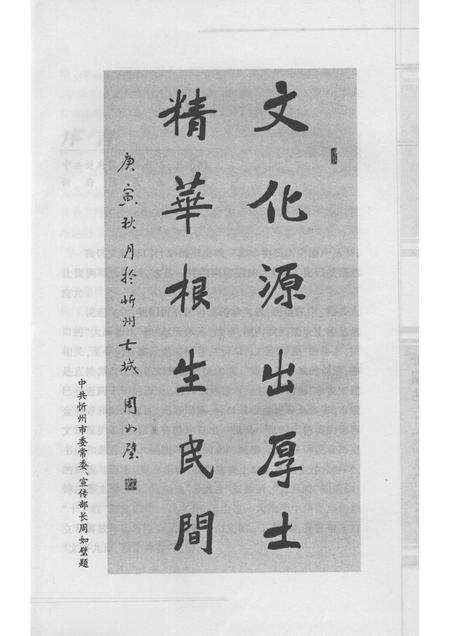 文化源出厚土
精華根生民間
庚寅秋月於忻州古城 周如璧
中共忻州市委常委、宣传部长周如璧题